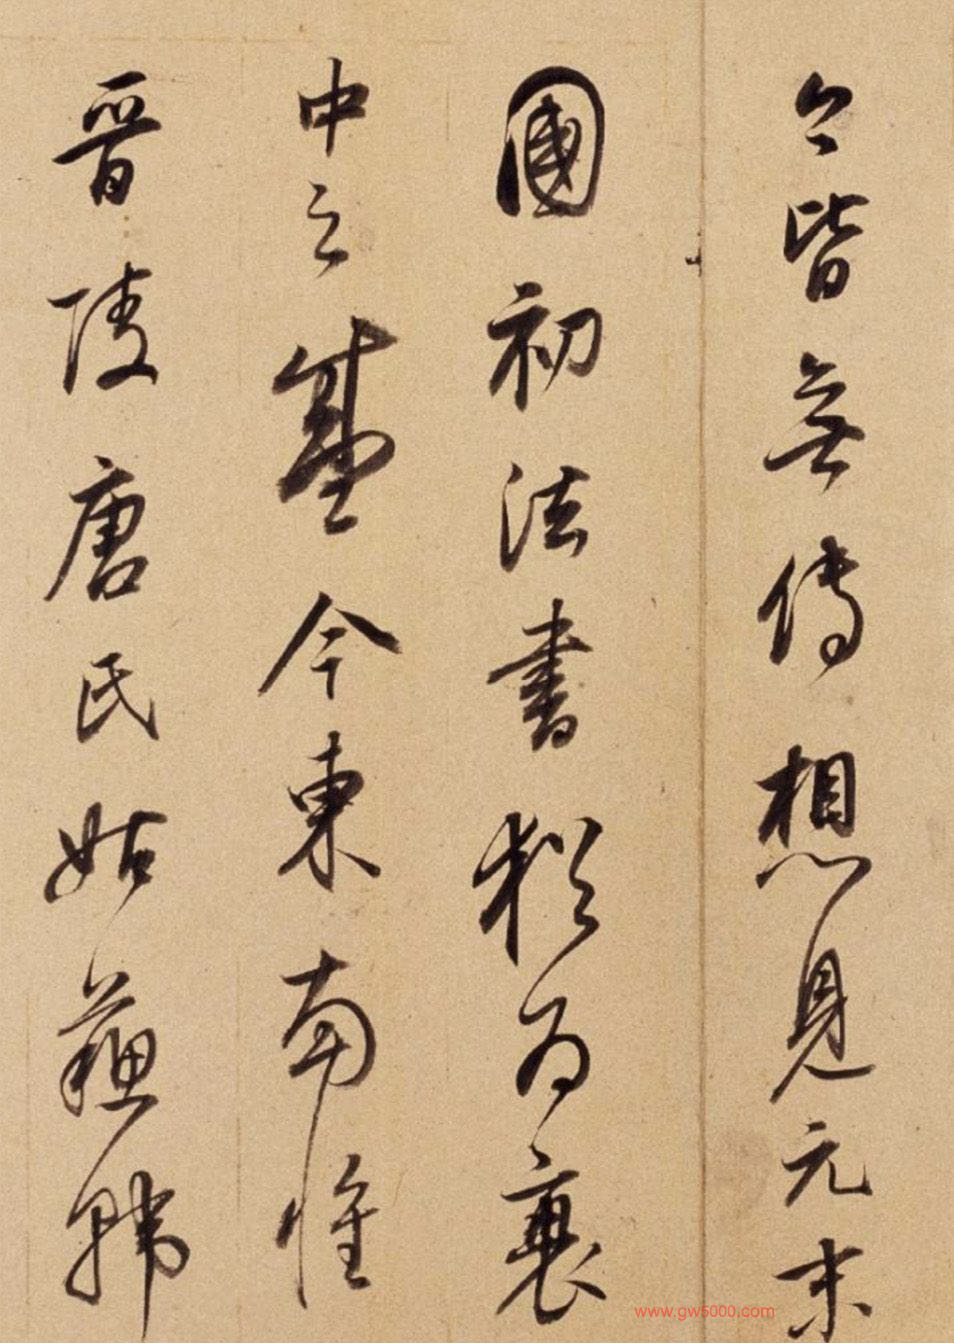 今皆無傳想見元末
國初法書猶為衰
中之盛今東南惟
晉陵唐氏姑蘇韓
www.gw5000.com